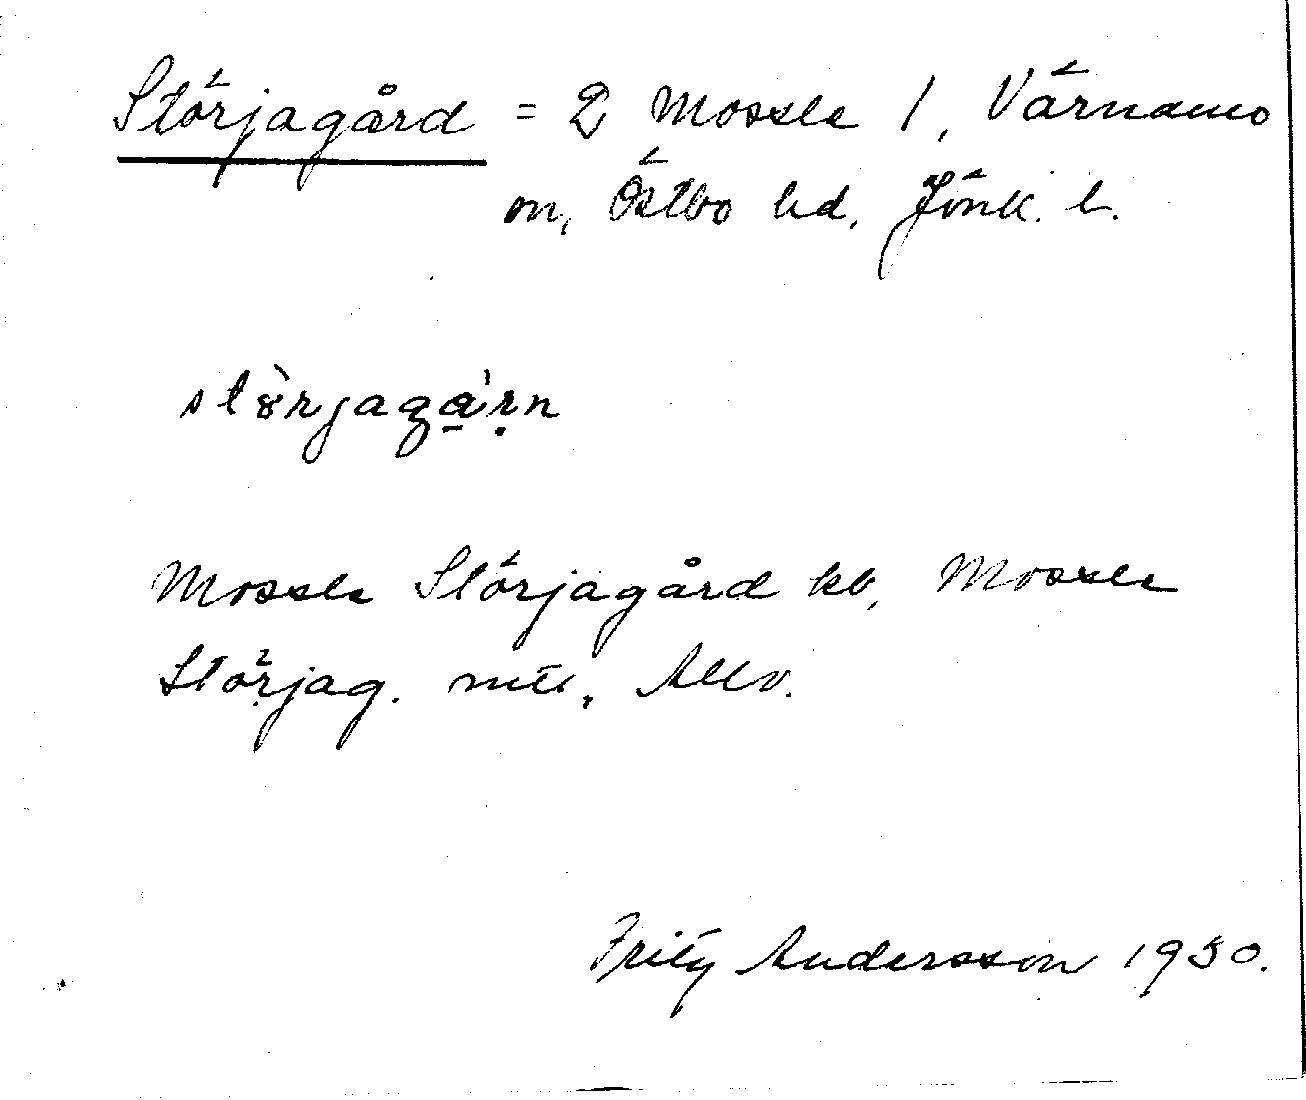 Störjagård = 2 Mossle 1, Värnamo
sn, Östbo hd, Jönk. l.
störjaga̱'ṛn
Mossle Störjagård kb, Mossle
Störjag. mtl, Allv.
Fritz Andersson 1930.